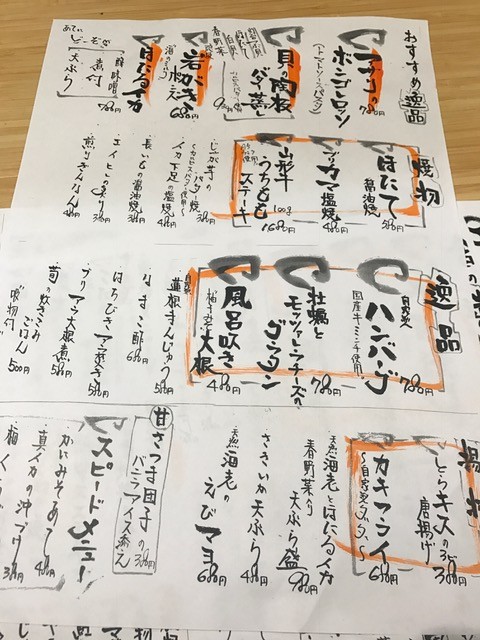 おすすめ逸品
アサリの
ボンゴレロッソ
(トマトソースパスタ)
780円
貝の陶板
バター蒸し
春野菜
岩がき
ポン酢
680円
ほたるイカ
酢味噌
煮付
天ぷら
780円
焼物
ほたて
醤油焼
580円
ブリカマ塩焼
480円
山形牛
うちもも
ステーキ
100g
1680円
じゃが芋の
バター焼
380円
イカ下足の塩焼
480円
長いもの醤油焼
380円
エイヒレの炙り
380円
煎りぎんなん
逸品
自家製
ハンバーグ
国産牛ミンチ使用
780円
牡蠣と
モッツァレラチーズの
グラタン
780円
風呂吹き
大根
柚子みそ
480円
自家製
蓮根まんじゅう
580円
なまこ酢
680円
はちびきマース煮
580円
ブリアラ大根煮
580円
筍の炊きこみ
ごはん
500円
吸物付
揚物
しらうオ
唐揚げ
380円
カキフライ
〜自家製タルタル〜
680円
天然海老とほたるイカ
春野菜の天ぷら盛
980円
ささいか天ぷら
480円
天然海老の
えびマヨ
680円
甘
さつま団子の
バニラアイス添え
380円
スピードメニュー
かにみそあて
480円
真イカの沖づけ
380円
梅くらげ